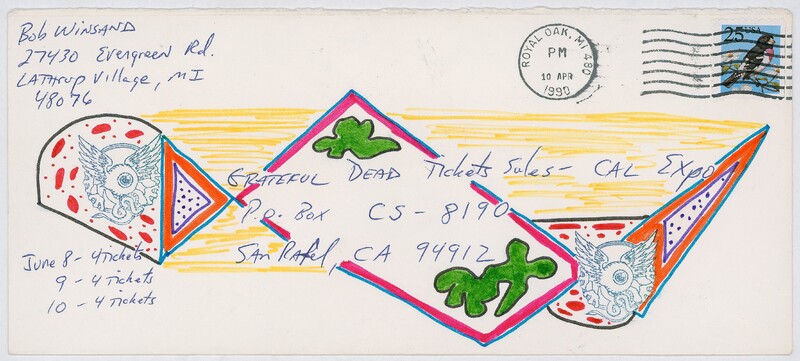 Bob Winsand
27430 Evergreen Rd.
Lathrup Village, MI
48076
ROYAL OAK, MI 480
PM
10 APR
1990
25 USA
Grateful Dead Tickets Sales - Cal Expo
P.O. Box CS-8190
San Rafel, CA 94912
June 8 - 4 Tickets
9 - 4 Tickets
10 - 4 Tickets